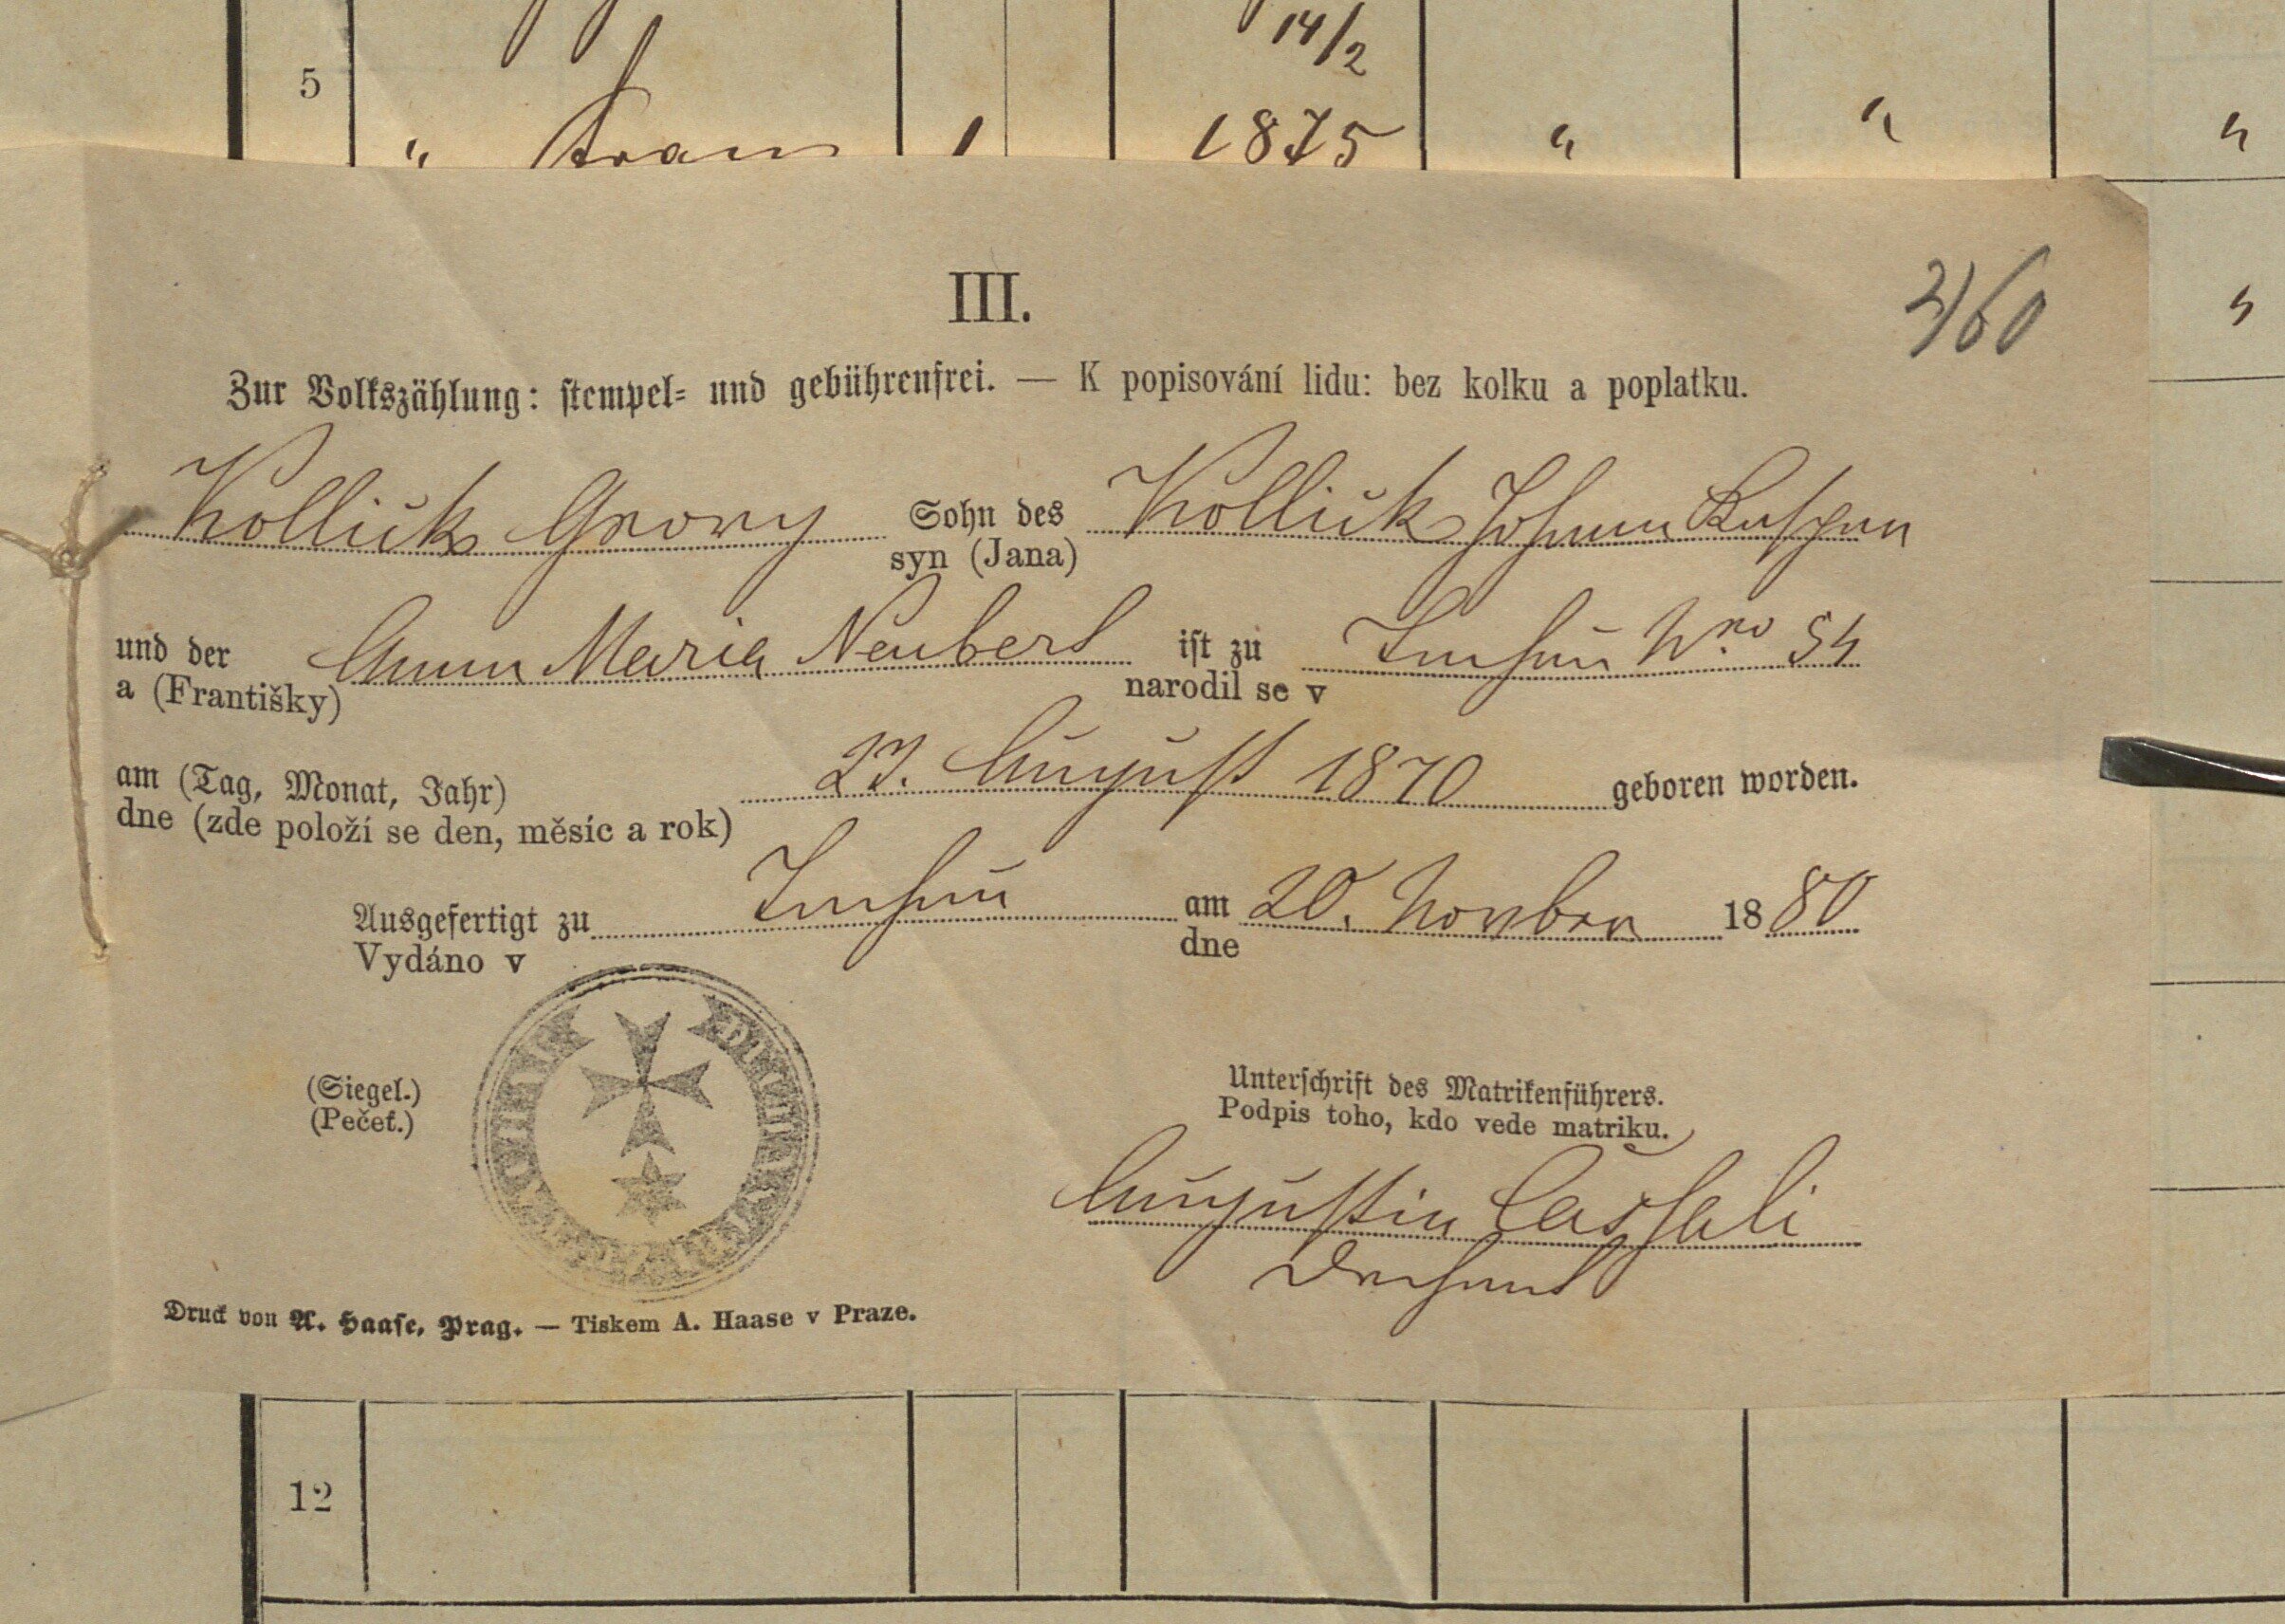 14/2
5
" 1 1875 " " "
III.
2/60
"
Zur Volkszählung: stempel- und gebührenfrei. — K popisování lidu: bez kolku a poplatku.
Kollick Georg Sohn des Kollick Johann Kaspar
syn (Jana)
und der Anna Maria Neubert ist zu Tachau Nro 54
a (Františky) narodil se v
am (Tag, Monat, Jahr) 27. August 1870 geboren worden.
dne (zde položí se den, měsíc a rok)
Ausgefertigt zu Tachau am 20. November 1880
Vydáno v dne
(Siegel.)
(Pečeť.)
Unterschrift des Matrikenführers.
Podpis toho, kdo vede matriku.
Augustin
Dechant
Druck von A. Haase, Prag. — Tiskem A. Haase v Praze.
12